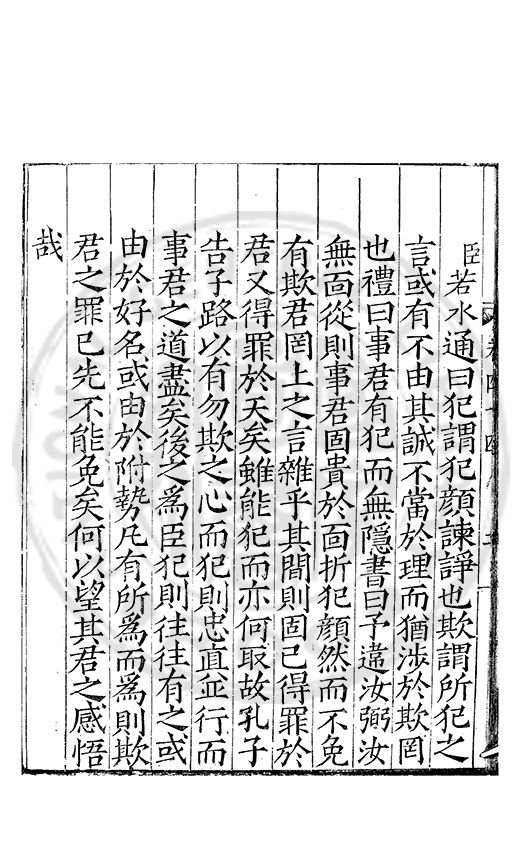 臣若水通曰犯謂犯顔諫諍也欺謂所犯之
言或有不由其誠不當於理而猶涉於欺罔
也禮曰事君有犯而無隱書曰予違汝弼汝
無面從則事君固貴於面折犯顔然而不免
有欺君罔上之言雜乎其間則固已得罪於
君又得罪於天矣雖能犯而亦何取故孔子
告子路以有勿欺之心而犯則忠直並行而
事君之道盡矣後之爲臣犯則往往有之或
由於好名或由於附勢凡有所爲而爲則欺
君之罪已先不能免矣何以望其君之感悟
哉